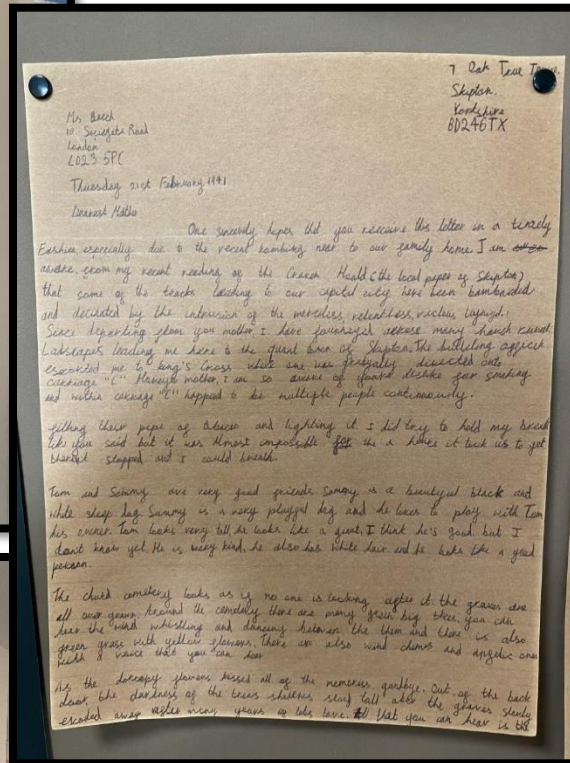 7 Oak Tree
Skipton.
Yorkshire
BD246TX
Ms Beech
10 Road
London
LO23 5PC
Thursday 21st February 1941
Dearest Mother
One sincerely hopes that you receive this letter in a timely
Fashion, especially due to the recent bombing near to our family home. I am
aware from my recent reading of the Craven Herald (the local paper of Skipton)
that some of the tracks leading to our capital city have been bombarded
and by the intrusion of the merciless, relentless, vicious
Since departing from you mother, I have journeyed across many harsh
leading me here to the town of Skipton. The billeting officer
escorted me to King's Cross where one was directed onto
carriage "C". mother, I am so aware of dislike for smoking
and within carriage "C" happed to be multiple people continuously.
filling their pipe of and lighting it I did try to hold my
like you said but it was Almost impossible the hours it took us to get
stopped and I could
Tom and Sammy are very good friends Sammy is a beautiful black and
white sheep dog. Sammy is a very playful dog and he loves to play with Tom
his owner. Tom looks very tall, he looks like a giant, I think he's good but I
don't know yet. He is very kind, he also has white hair and he looks like a good
person.
The cemetery looks as if no one is looking after it. the graves are
all over grown. Around the cemetery there are many big trees, you can
hear the wind whistling and dancing between the them and there is also
green grass with yellow There are also wind chimes and angelic
with a voice that you can hear
As the kissed all of the memories goodbye. Out of the back
door, the darkness of the shelters stand tall after the graves slowly
away after many years of love. that you can hear is the